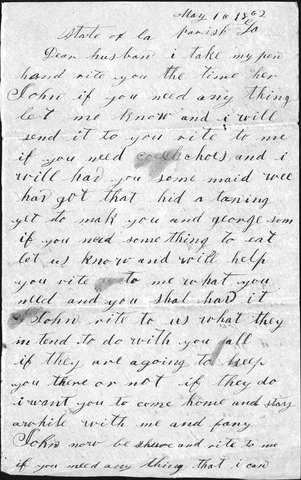 May 10 1862
State of La parish La
Dear husban i take my pen
hand rite you the time her
John if you need any thing
let me know and i will
send it to you rite to me
if you need and i
will had you some maid wee
har got that hid a taning
yet to mak you and george som
if you need something to eat
let us know and will help
you rite to me what you
need and you shal had it
John rite to us what they
intend to do with you all
if they are agoing to keep
you there or not if they do
i want you to come home and stay
awhile with me and fany
John now be shure and rite to me
if you need any thing that i can